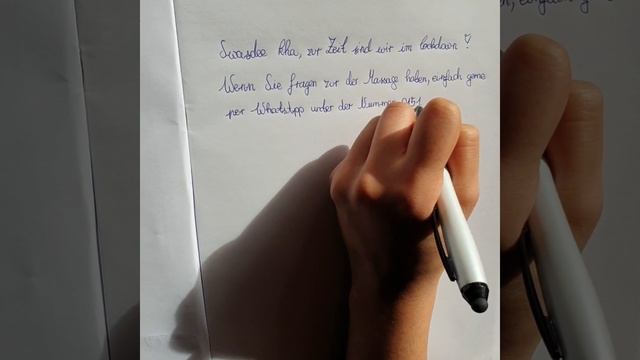 Swasdee kha, zur Zeit sind wir im Lockdown
Wenn Sie fragen zur der Massage haben, einfach gerne
per WhatsApp unter der Nummer 0151